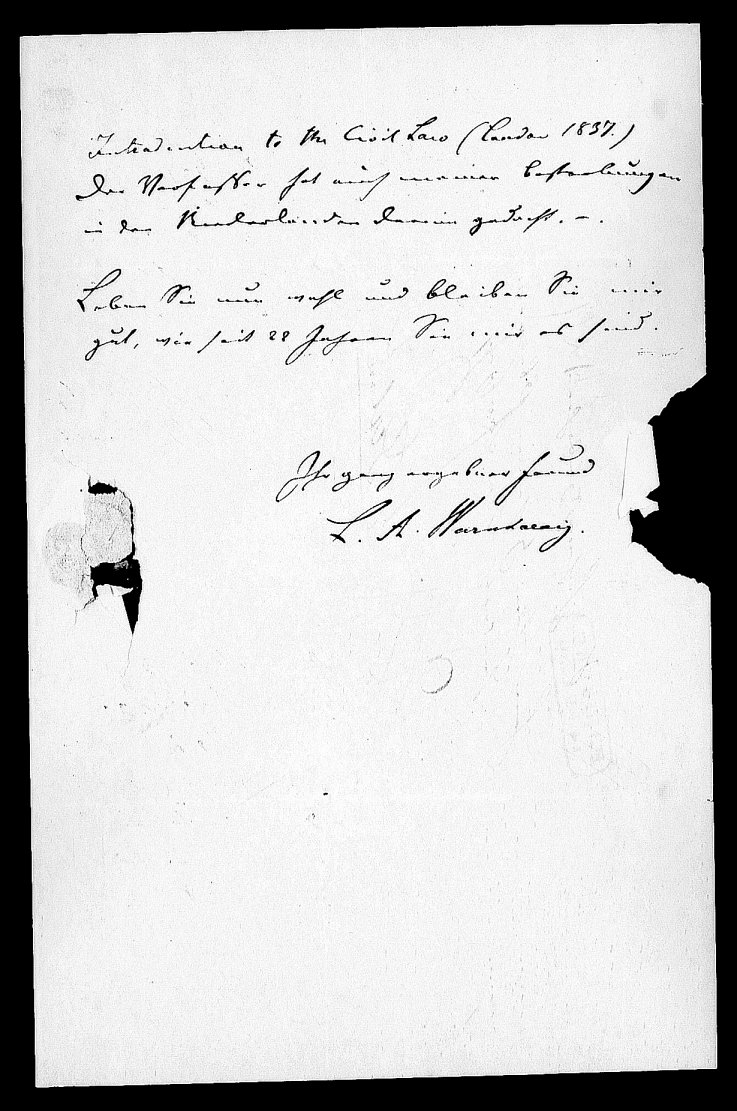 Introduction to the Civil Law (London 1837.)
Der Verfasser hat auch meiner Bestrebungen
in den Niederlanden darin gedacht. –.
Leben Sie nun wohl und bleiben Sie mir
gut, wie seit 22 Jahren Sie mir es sind.
Ihr ganz ergebner Freund
L. A. Warnkoenig.